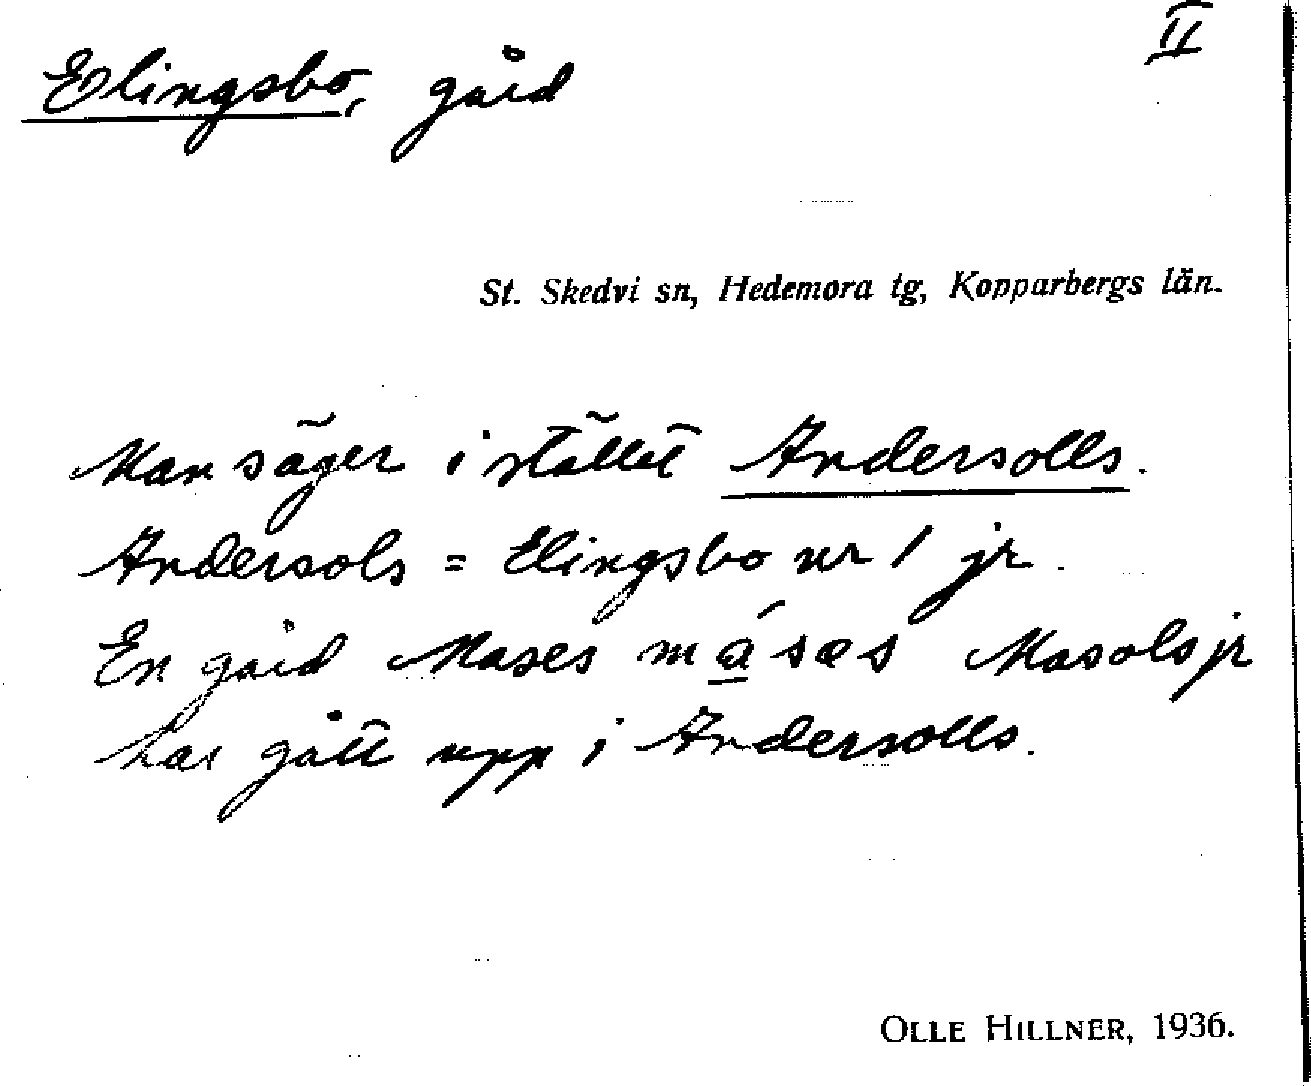 II
Elingsbo, gård
St. Skedvi sn, Hedemora tg, Kopparbergs län.
Man säger i stället Andersolls.
Andersols = Elingsbo nr 1 jr.
En gård Mases má̱sæs Masols jr
har gått upp i Andersolls.
OLLE HILLNER, 1936.